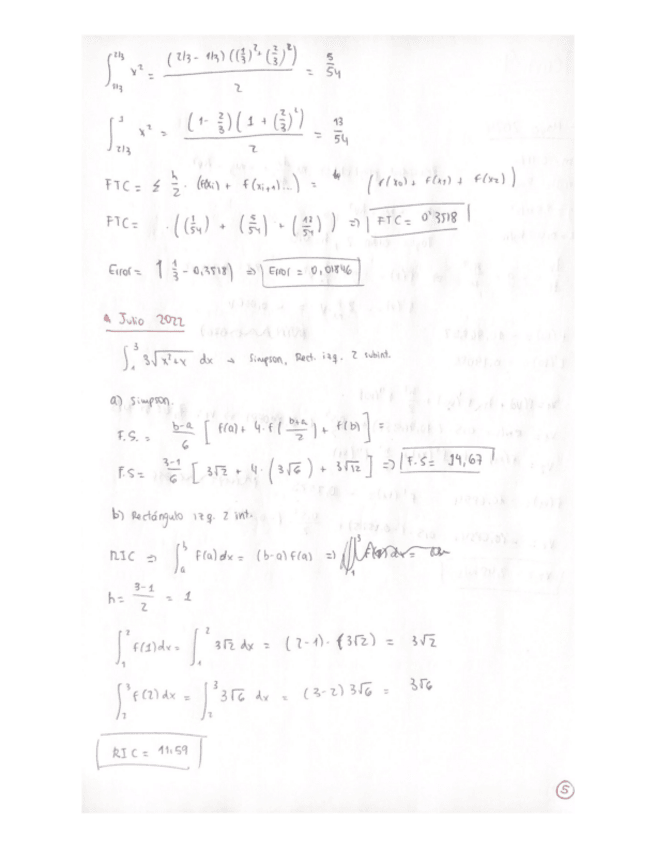 ∫_{1/3}^{2/3} x² = (2/3 - 1/3)((1/3)² + (2/3)²) / 2 = 5/54
∫_{2/3}^{1} x² = (1 - 2/3)(1 + (2/3)²) / 2 = 13/54
FTC = Σ h/2 · (f(xi) + f(xi+1)...) = (f(x0) + f(x1) + f(x2))
FTC = · ((1/54) + (5/54) + (13/54)) => FTC = 0'3518
Error = | 1/3 - 0,3518| => Error = 0,01846
Julio 2022
∫_1^3 3√(x²+x) dx → Simpson, Rect. izq. 2 subint.
a) Simpson.
F.S. = b-a/6 [f(a) + 4·f(b+a/2) + f(b)] =
F.S = 3-1/6 [3√2 + 4·(3√6) + 3√12] => F.S = 14,67
b) Rectángulo izq. 2 int.
RIC => ∫_a^b f(a) dx = (b-a) f(a) =>
h = 3-1/2 = 1
∫_1^2 f(1) dx = ∫_1^2 3√2 dx = (2-1)·(3√2) = 3√2
∫_2^3 f(2) dx = ∫_2^3 3√6 dx = (3-2) 3√6 = 3√6
RIC = 11,59
5